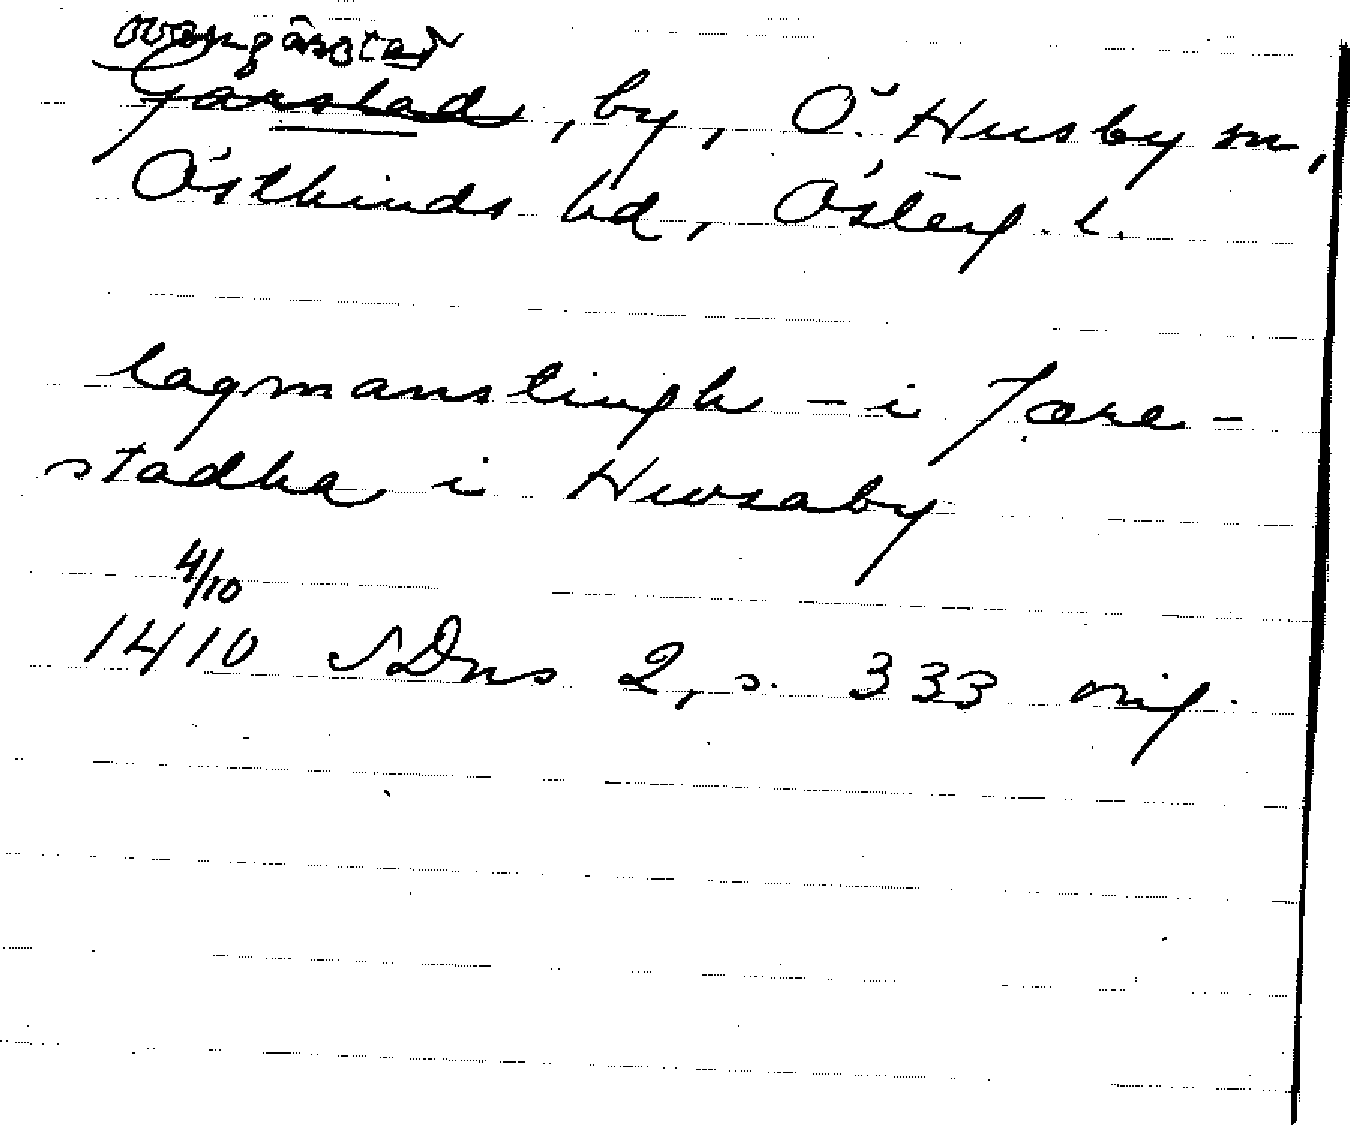 Garstad, by, Ö. Husby sn,
Östkinds hd, Österg. l.
lagmanstingh – i
stadha i Hwsaby
4/10
1410 SDns 2, s. 333 orig.